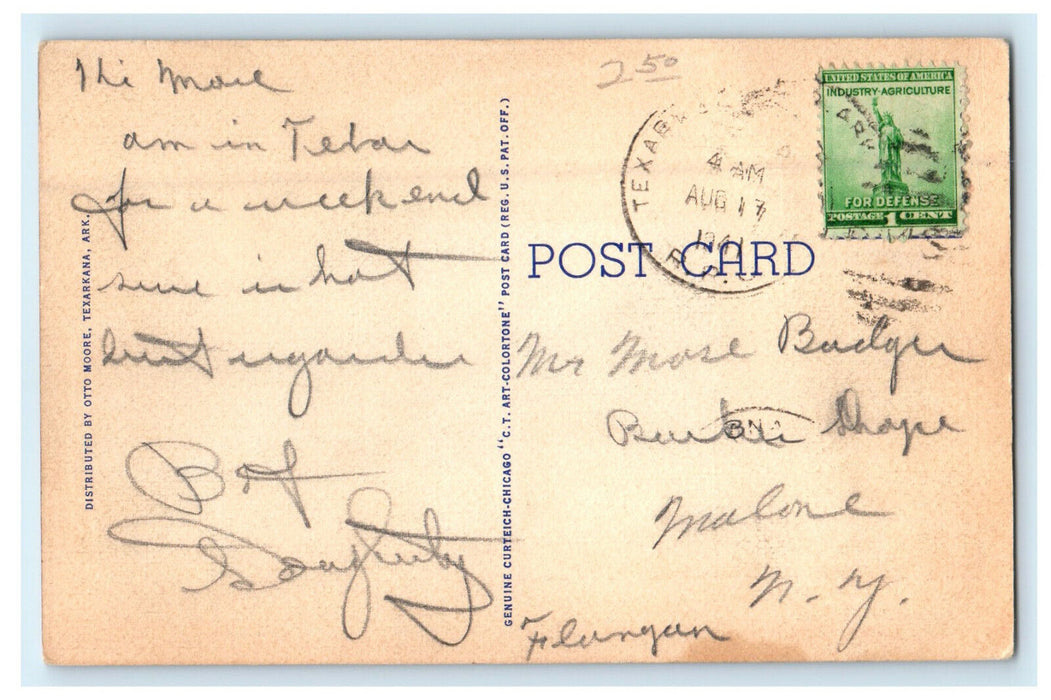 Hi Mose
am in Texas
for a weekend
sure is hot
but
B
Dougherty
DISTRIBUTED BY OTTO MOORE, TEXARKANA, ARK.
GENUINE CURTEICH-CHICAGO "C. T. ART-COLORTONE" POST CARD (REG. U. S. PAT. OFF.)
2 50
TEXAR
4 AM
AUG 17
R.P.O.
UNITED STATES OF AMERICA
INDUSTRY-AGRICULTURE
FOR DEFENSE
POSTAGE 1 CENT
POST CARD
Mr Mose Badger
Barber Shope
Malone
N. Y.
Flangan